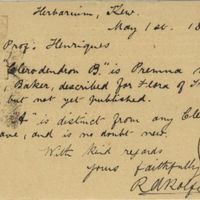 Herbarium, Kew.
May 1st. 18
Prof. Henriques
Clerodendron B." is Premna
, Baker, described for Flora of
but not yet published.
A" is distinct from any Cle
ave, and is no doubt new.
With kind regards
Yours faithfully
R A Rolfe